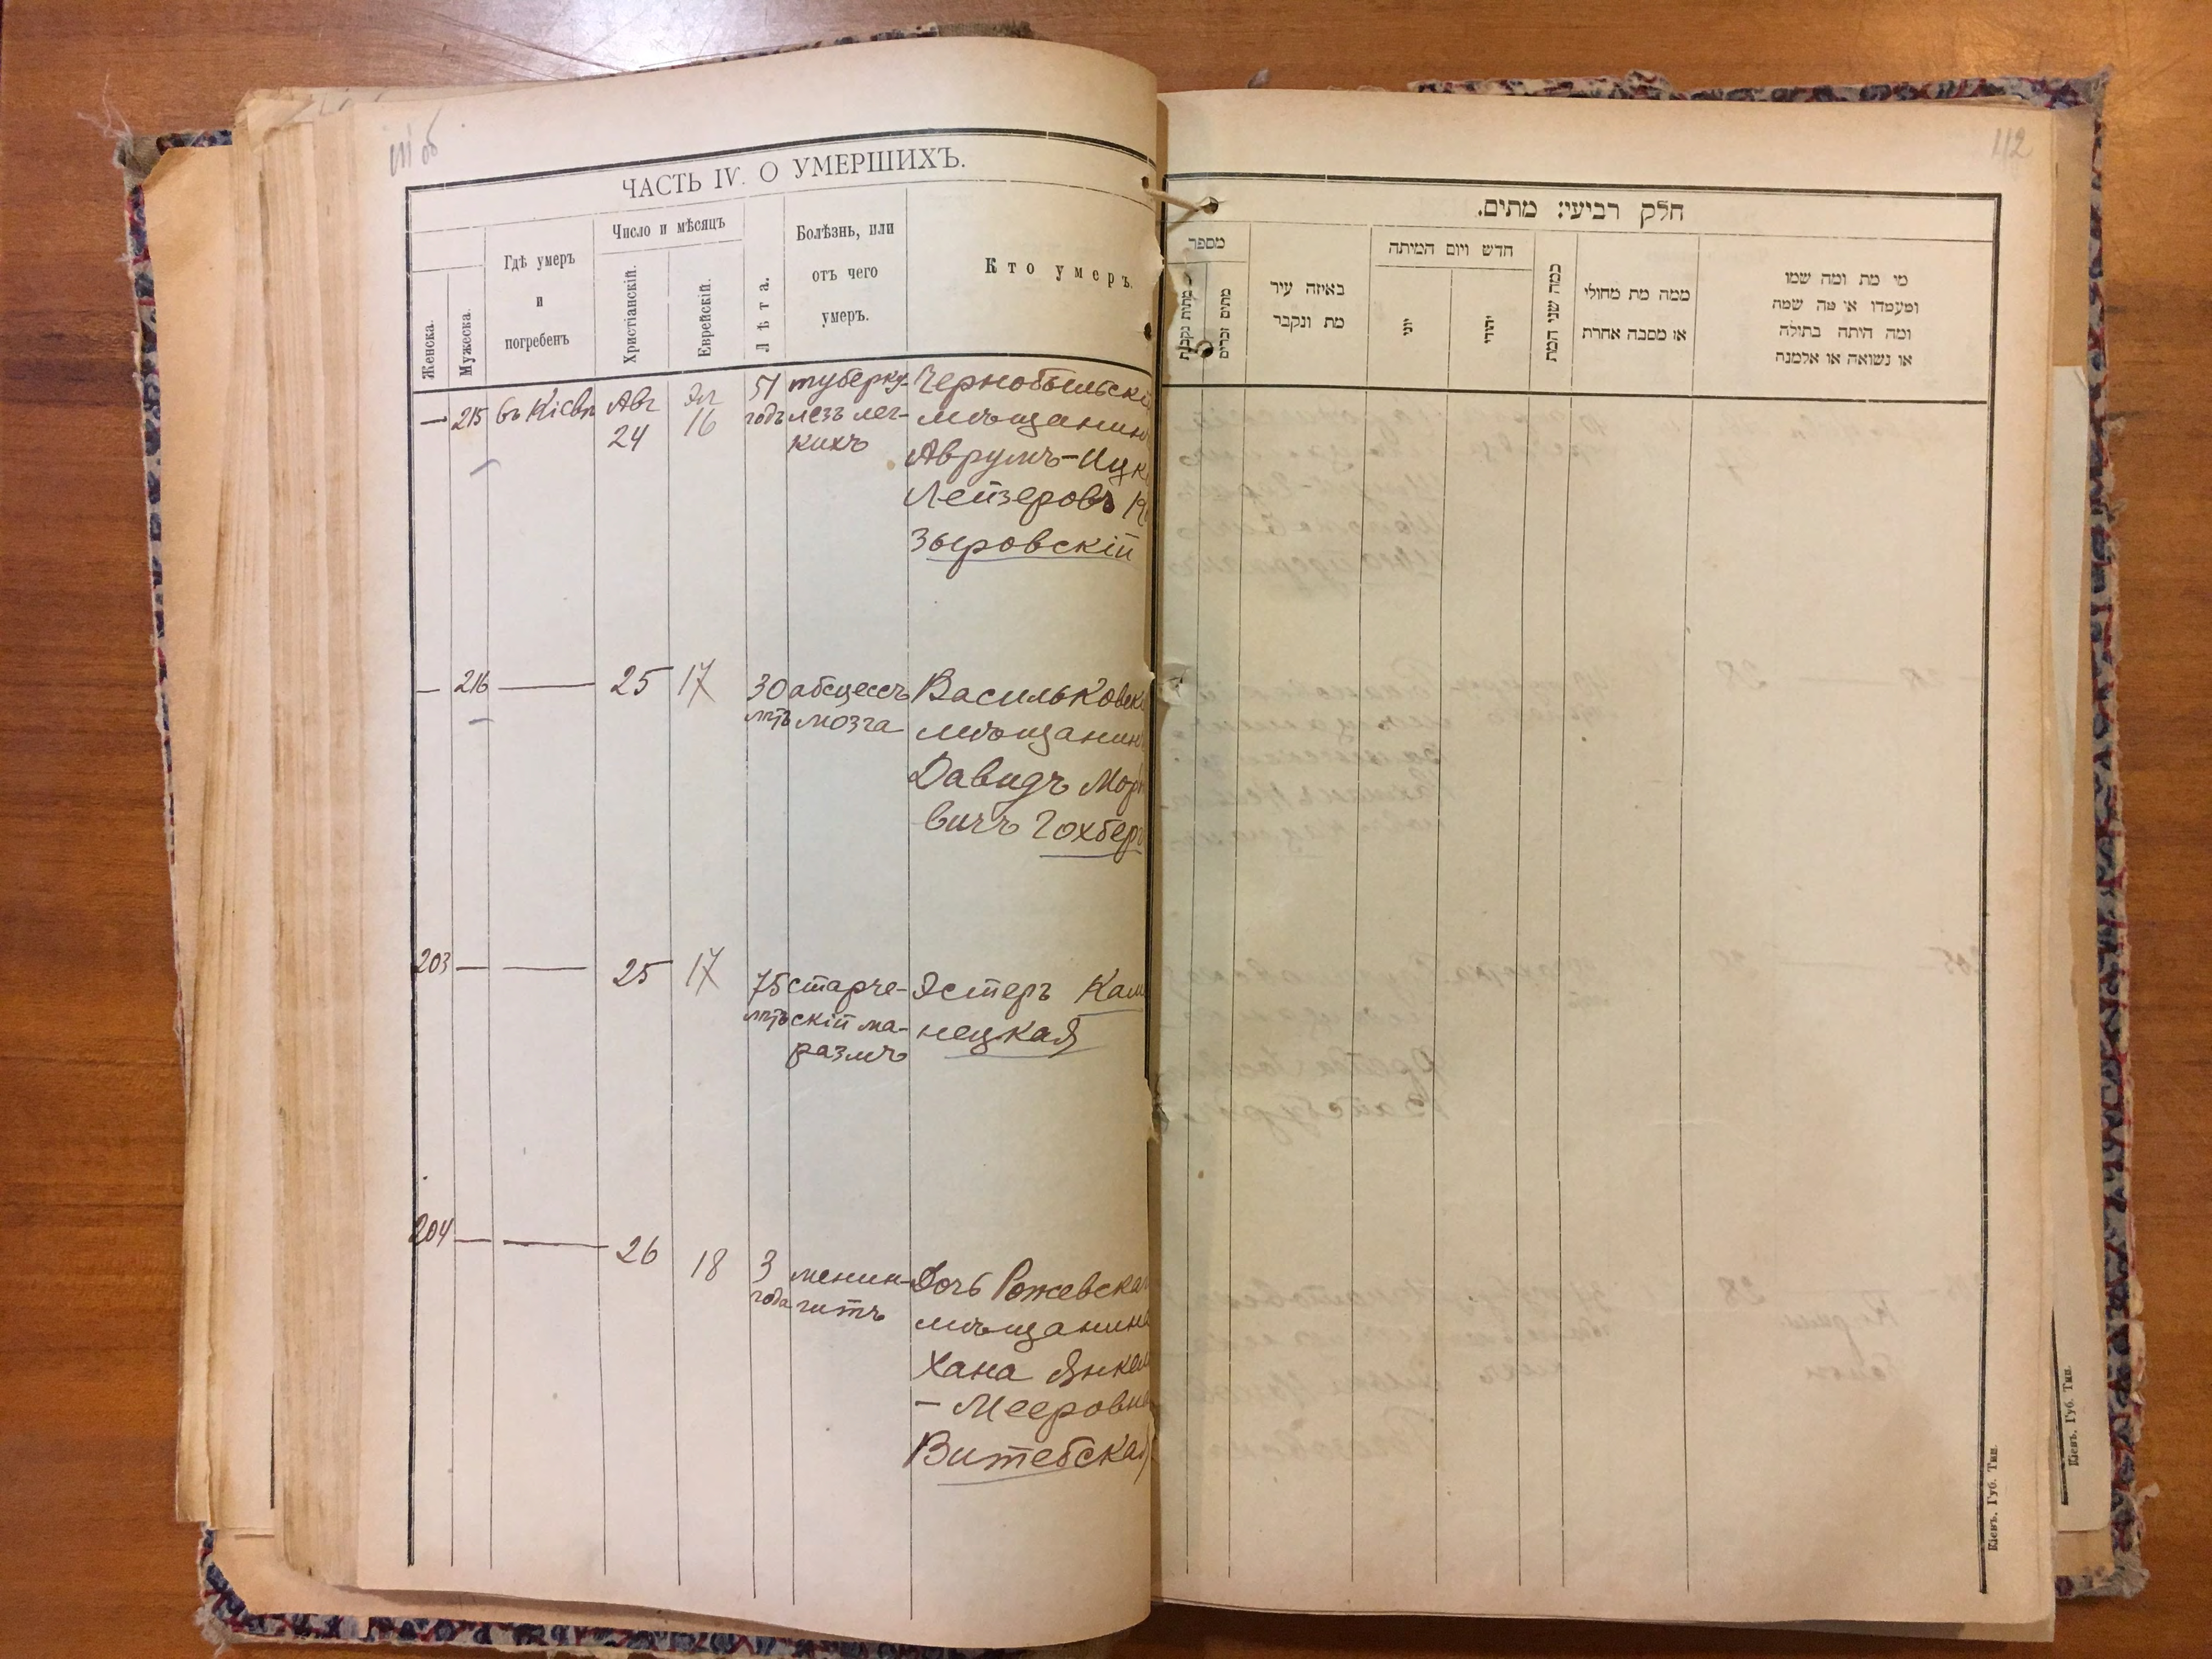 111 об
ЧАСТЬ IV. О УМЕРШИХЪ.
Женска.
Мужеска.
Гдѣ умеръ
и
погребенъ
Число и мѣсяцъ
Христіанскій.
Еврейскій.
Лѣта.
Болѣзнь, или
отъ чего
умеръ.
Кто умеръ.
— 215 въ Кіевѣ Авг 24 Эл 16 51 годъ
туберку-
лезъ лег-
кихъ
Чернобыльскі
мѣщанин
Аврумъ-Ицк
Лейзеровъ К
зыровскій
— 216 — 25 17 30 лѣтъ
абсцессъ
мозга
Васильковск
мѣщанин
Давидъ Мор
вичъ Гохбер
203 — — 25 17 75 лѣтъ
старче-
скій ма-
размъ
Эстеръ Кам
нецкая
204 — — 26 18 3 года
менин-
гитъ
Дочь Рожевска
мѣщанина
Хана Янкел
- Мееровна
Витебская
112
חלק רביעי: מתים.
מספר
מתות נקבות
מתים זכרים
באיזה עיר
מת ונקבר
חדש ויום המיתה
יוני
יהודי
כמה שני המת
ממה מת מחולי
או מסבה אחרת
מי מת ומה שמו
ומעמדו או מה שמה
ומה היתה בתולה
או נשואה או אלמנה
Кіевъ. Губ. Тип.
Кіевъ. Губ. Тип.